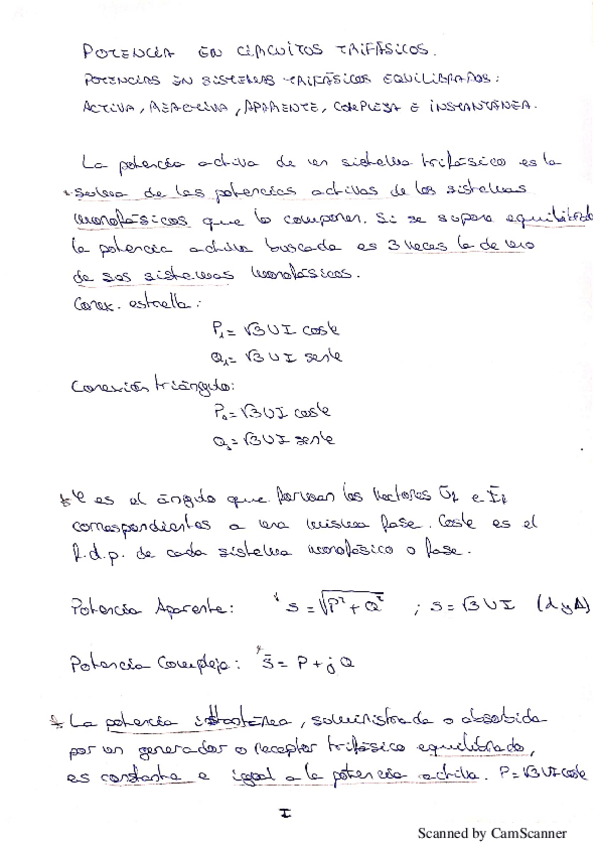 POTENCIA EN CIRCUITOS TRIFÁSICOS.
POTENCIAS EN SISTEMAS TRIFÁSICOS EQUILIBRADOS:
ACTIVA, REACTIVA, APARENTE, COMPLEJA E INSTANTÁNEA.
La potencia activa de un sistema trifásico es la
suma de las potencias activas de los sistemas
monofásicos que lo componen. Si se supone equilibrado
la potencia activa buscada es 3 veces la de uno
de sus sistemas monofásicos.
Conex. estrella:
P₁= √3 U I cosφ
Q₁= √3 U I senφ
Conexión triángulo:
P₀= √3 U I cosφ
Q₃= √3 U I senφ
* φ es el ángulo que forman los vectores Ūf e Īf
correspondientes a una misma fase. Cosφ es el
f.d.p. de cada sistema monofásico o fase.
Potencia Aparente: * S = √P² + Q² ; S = √3 U I (λ y Δ)
Potencia Compleja: * S̄ = P + j Q
* La potencia instantánea, suministrada o absorbida
por un generador o receptor trifásico equilibrado,
es constante e igual a la potencia activa. P = √3 U I cosφ
I
Scanned by CamScanner